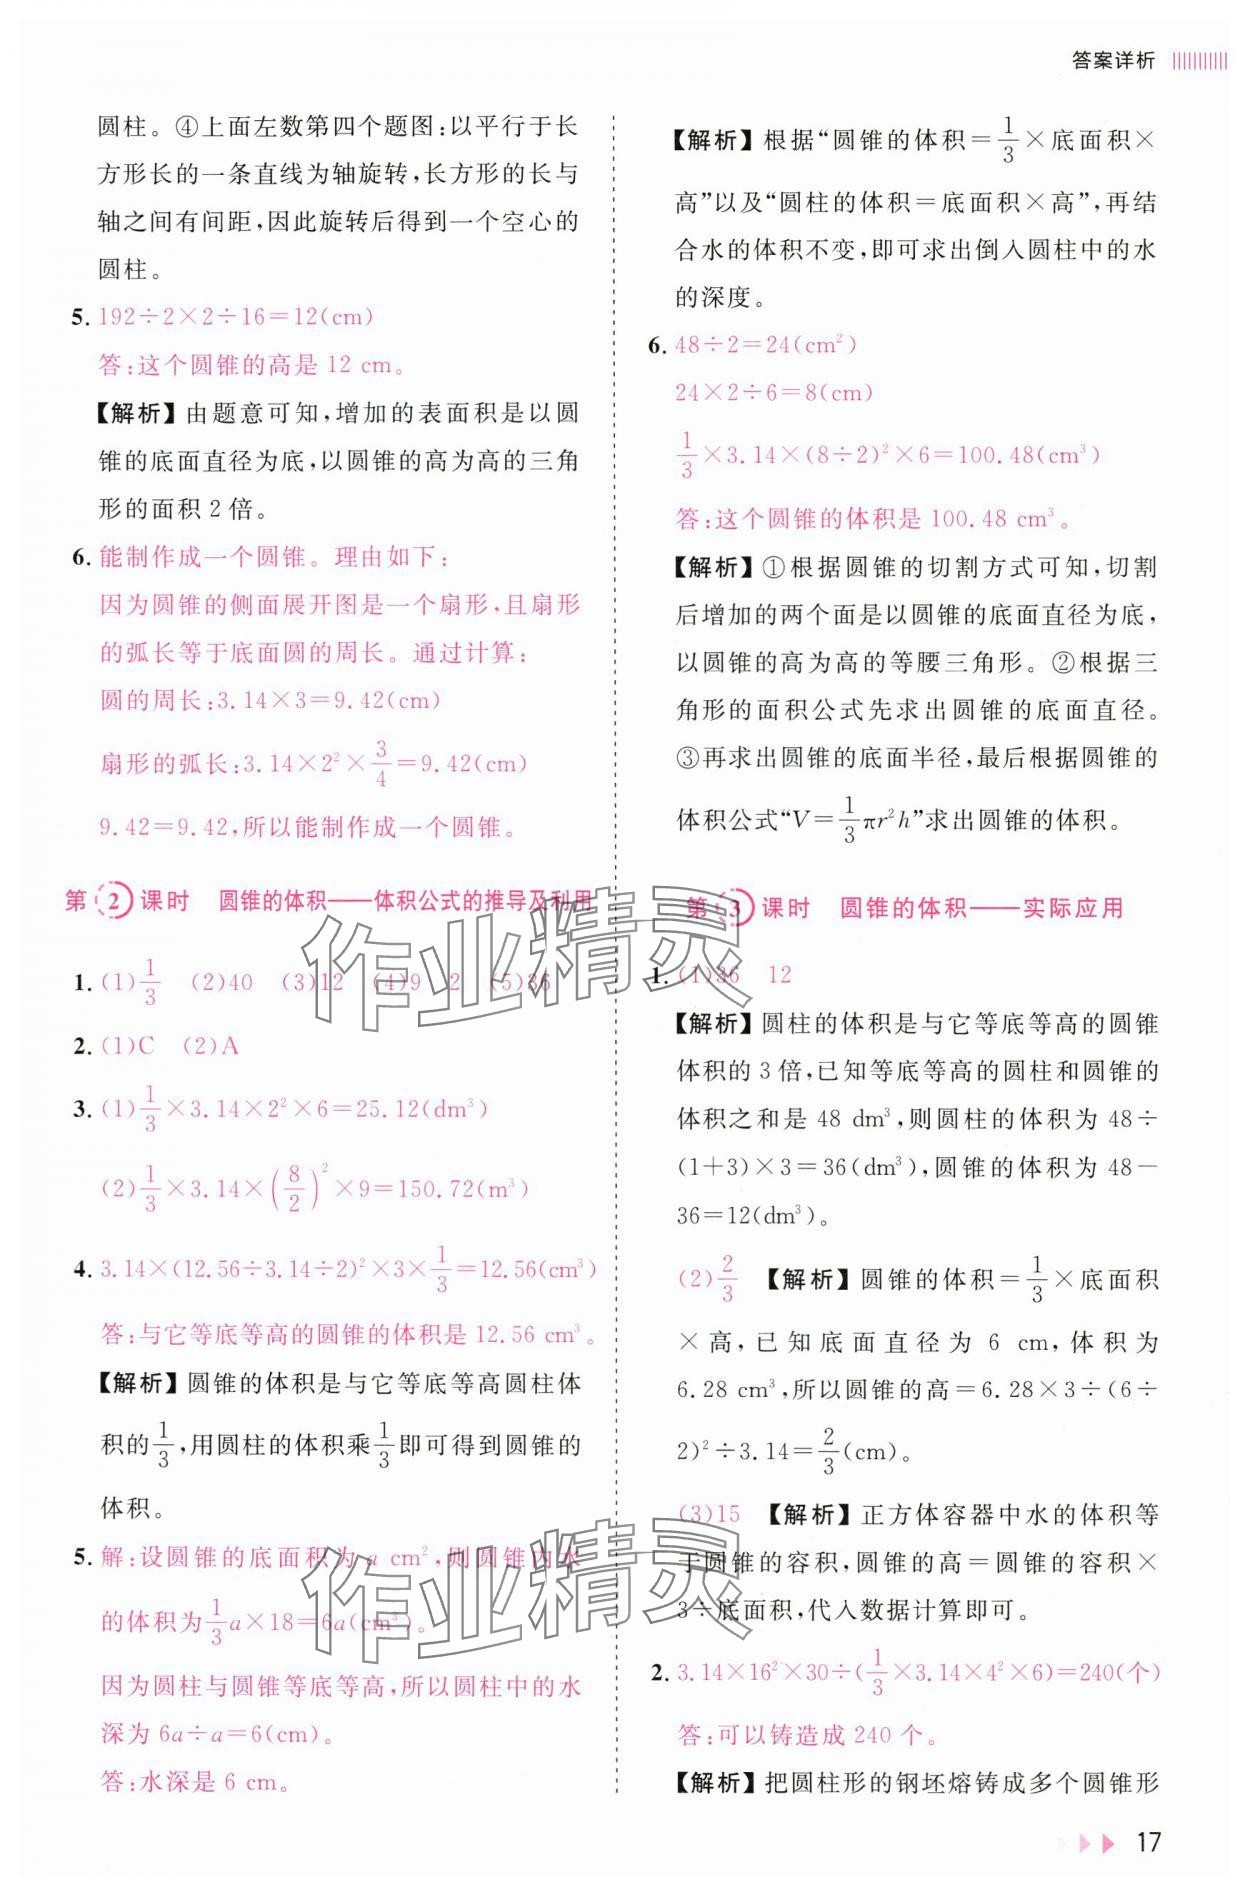 答案详析
圆柱。④上面左数第四个题图:以平行于长
方形长的一条直线为轴旋转,长方形的长与
轴之间有间距,因此旋转后得到一个空心的
圆柱。
5. 192÷2×2÷16=12(cm)
答:这个圆锥的高是 12 cm。
【解析】由题意可知,增加的表面积是以圆
锥的底面直径为底,以圆锥的高为高的三角
形的面积 2 倍。
6. 能制作成一个圆锥。理由如下:
因为圆锥的侧面展开图是一个扇形,且扇形
的弧长等于底面圆的周长。通过计算:
圆的周长:3.14×3=9.42(cm)
扇形的弧长:3.14×2²×3/4=9.42(cm)
9.42=9.42,所以能制作成一个圆锥。
第2课时 圆锥的体积——体积公式的推导及利用
1. (1)1/3 (2)40 (3)12 (4)9 2 (5)36
2. (1)C (2)A
3. (1)1/3×3.14×2²×6=25.12(dm³)
(2)1/3×3.14×(8/2)²×9=150.72(m³)
4. 3.14×(12.56÷3.14÷2)²×3×1/3=12.56(cm³)
答:与它等底等高的圆锥的体积是 12.56 cm³。
【解析】圆锥的体积是与它等底等高圆柱体
积的1/3,用圆柱的体积乘1/3即可得到圆锥的
体积。
5. 解:设圆锥的底面积为 a cm²,则圆锥内水
的体积为1/3a×18=6a(cm³)。
因为圆柱与圆锥等底等高,所以圆柱中的水
深为 6a÷a=6(cm)。
答:水深是 6 cm。
【解析】根据“圆锥的体积=1/3×底面积×
高”以及“圆柱的体积=底面积×高”,再结
合水的体积不变,即可求出倒入圆柱中的水
的深度。
6. 48÷2=24(cm²)
24×2÷6=8(cm)
1/3×3.14×(8÷2)²×6=100.48(cm³)
答:这个圆锥的体积是 100.48 cm³。
【解析】①根据圆锥的切割方式可知,切割
后增加的两个面是以圆锥的底面直径为底,
以圆锥的高为高的等腰三角形。②根据三
角形的面积公式先求出圆锥的底面直径。
③再求出圆锥的底面半径,最后根据圆锥的
体积公式“V=1/3πr²h”求出圆锥的体积。
第3课时 圆锥的体积——实际应用
1. (1)36 12
【解析】圆柱的体积是与它等底等高的圆锥
体积的 3 倍,已知等底等高的圆柱和圆锥的
体积之和是 48 dm³,则圆柱的体积为 48÷
(1+3)×3=36(dm³),圆锥的体积为 48-
36=12(dm³)。
(2)2/3 【解析】圆锥的体积=1/3×底面积
×高,已知底面直径为 6 cm,体积为
6.28 cm³,所以圆锥的高=6.28×3÷(6÷
2)²÷3.14=2/3(cm)。
(3)15 【解析】正方体容器中水的体积等
于圆锥的容积,圆锥的高=圆锥的容积×
3÷底面积,代入数据计算即可。
2. 3.14×16²×30÷(1/3×3.14×4²×6)=240(个)
答:可以铸造成 240 个。
【解析】把圆柱形的钢坯熔铸成多个圆锥形
17
作业精灵
作业精灵